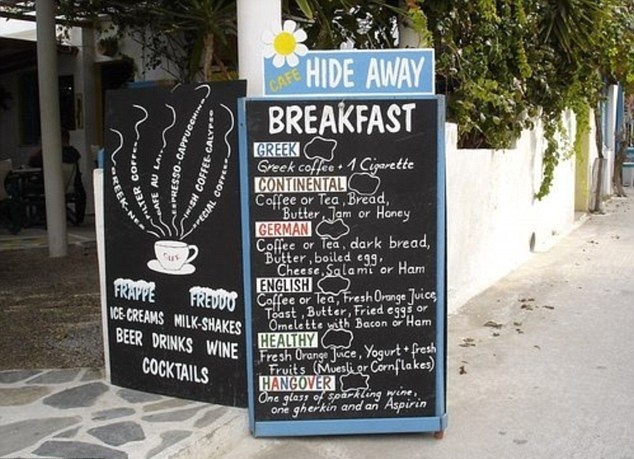 CAFE HIDE AWAY
BREAKFAST
GREEK
Greek coffee + 1 Cigarette
CONTINENTAL
Coffee or Tea, Bread,
Butter, Jam or Honey
GERMAN
Coffee or Tea, dark bread,
Butter, boiled egg,
Cheese, Salami or Ham
ENGLISH
Coffee or Tea, Fresh Orange Juice,
Toast, Butter, Fried eggs or
Omelette with Bacon or Ham
HEALTHY
Fresh Orange Juice, Yogurt + fresh
Fruits (Muesli or Cornflakes)
HANGOVER
One glass of sparkling wine,
one gherkin and an Aspirin
GREEK-NES
FILTER COFFEE
CAFE AU LAIT
ESPRESSO-CAPPUCCINO
IRISH COFFEE-CALYPSO
SPECIAL COFFEE
CAFE
FRAPPE FREDDO
ICE-CREAMS MILK-SHAKES
BEER DRINKS WINE
COCKTAILS